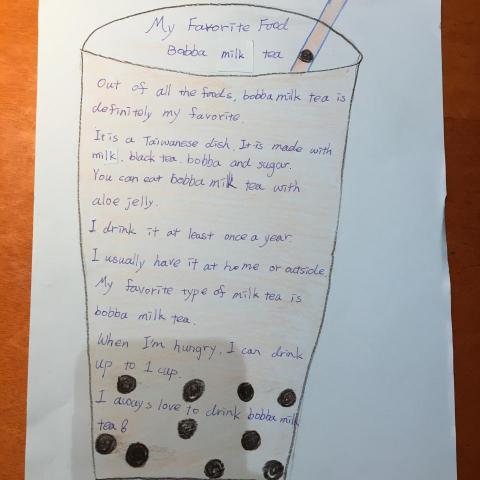 My Favorite Food
Bobba milk tea
Out of all the foods, bobba milk tea is
definitely my favorite.
It is a Taiwanese dish. It is made with
milk, black tea, bobba and sugar.
You can eat bobba milk tea with
aloe jelly.
I drink it at least once a year.
I usually have it at home or outside.
My favorite type of milk tea is
bobba milk tea.
When I'm hungry, I can drink
up to 1 cup.
I aways love to drink bobba milk
tea